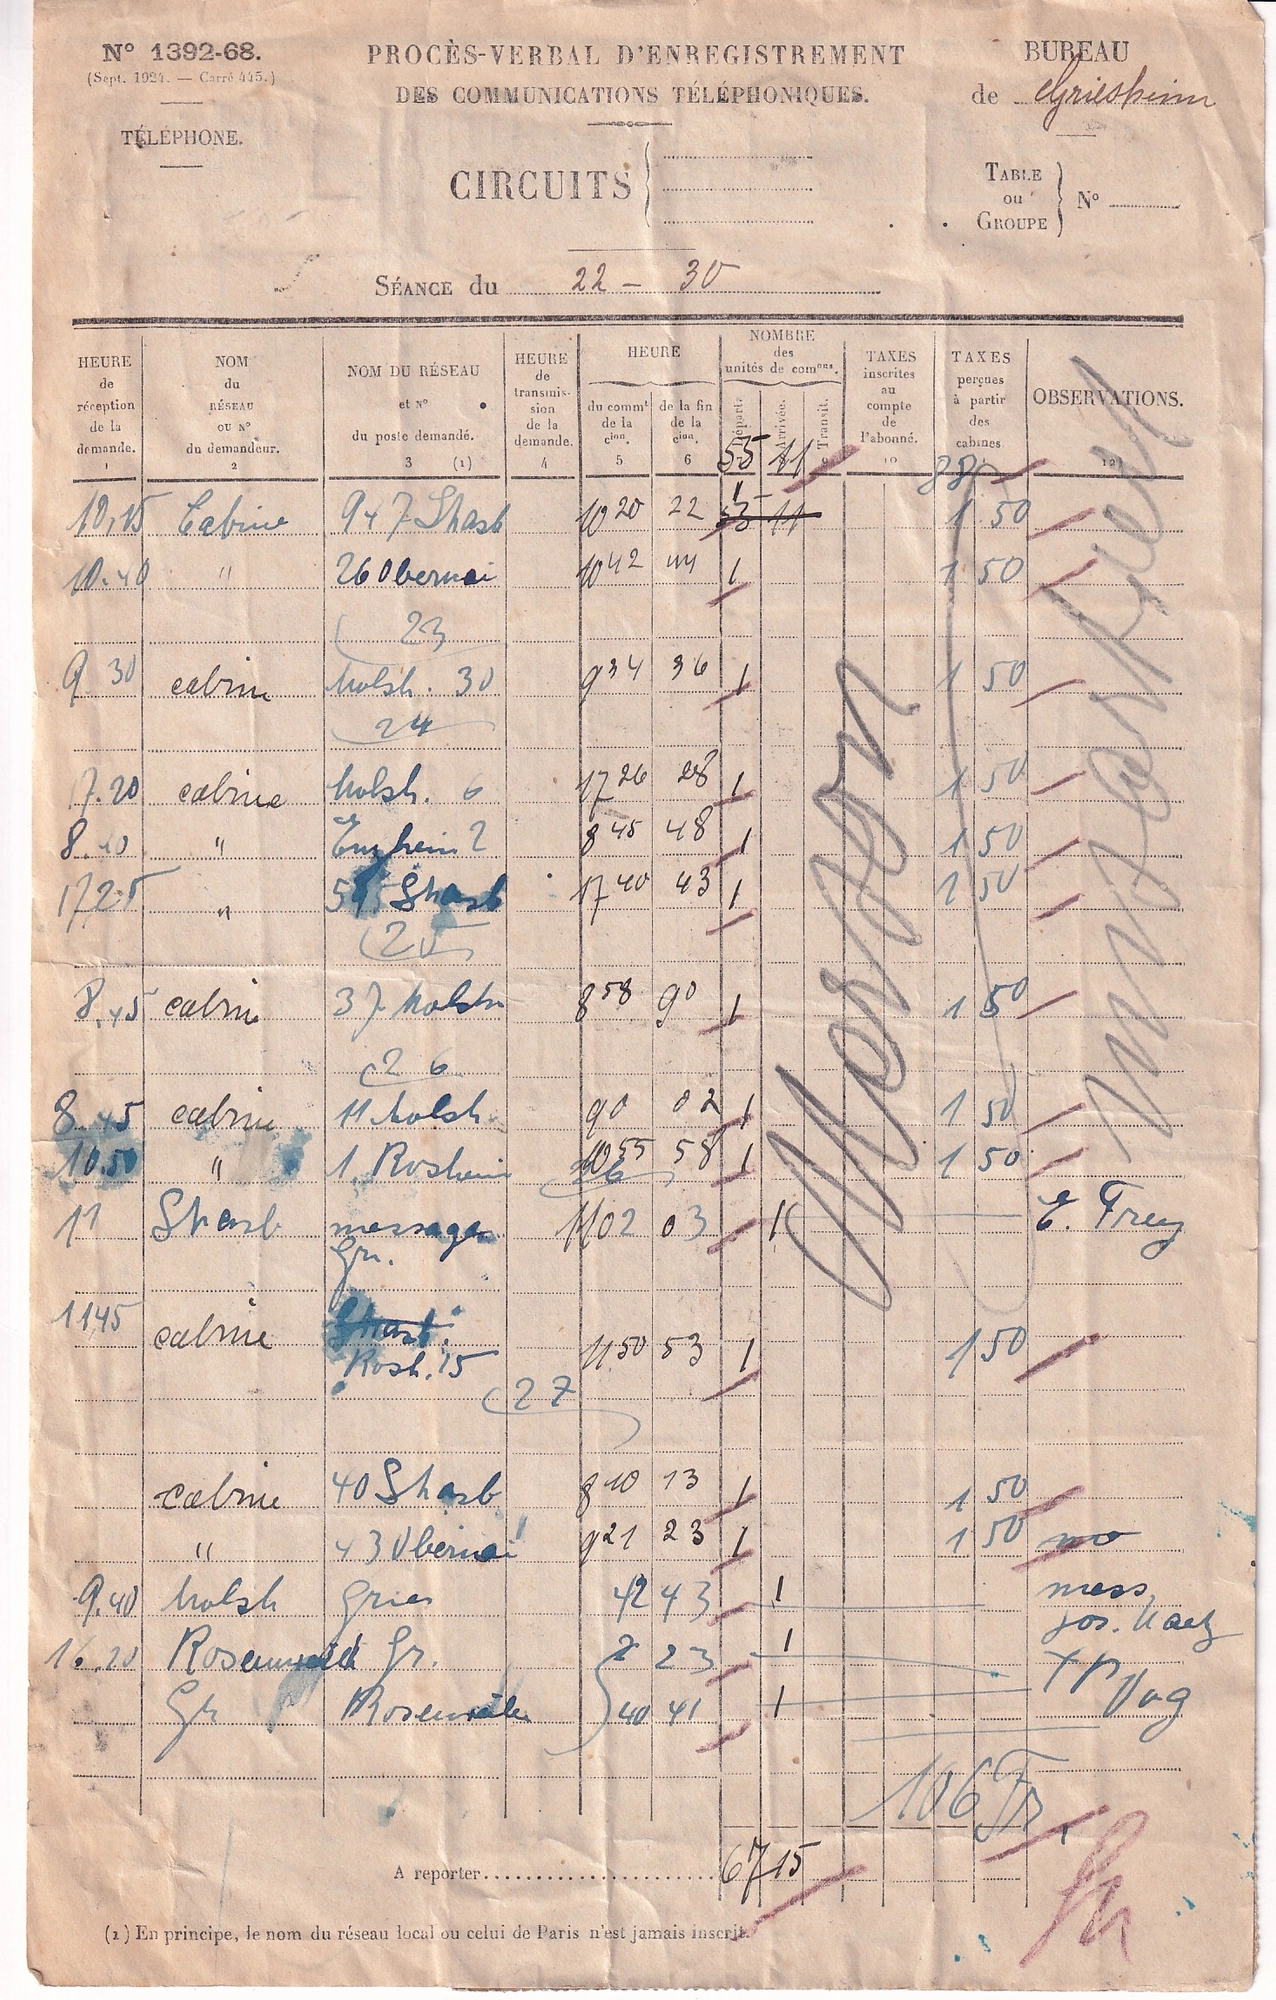 N° 1392-68.
(Sept. 1924. — Carré 445.)
TÉLÉPHONE.
PROCÈS-VERBAL D'ENREGISTREMENT
DES COMMUNICATIONS TÉLÉPHONIQUES.
CIRCUITS
BUREAU
de Griesheim
TABLE
ou
GROUPE
N°
SÉANCE du 22 - 30
HEURE de réception de la demande. 1
NOM du RÉSEAU OU N° du demandeur. 2
NOM DU RÉSEAU et N° du poste demandé. 3 (1)
HEURE de transmission de la demande. 4
HEURE
du commt de la cion. 5
de la fin de la cion. 6
NOMBRE des unités de comons.
Départ.
Arrivée.
Transit.
TAXES inscrites au compte de l'abonné. 10
TAXES perçues à partir des cabines
OBSERVATIONS. 12
55 11 88
10,15 Cabine 947 Strasb 10 20 22 1 50
10.40 " 26 Obernai 10 42 44 1 1 50
23
9 30 cabine Molsh. 30 9 34 36 1 1 50
24
17.20 cabine Molsh. 6 17 26 28 1 1 50
8.40 " Enzheim 2 8 45 48 1 1 50
17 25 " 595 Strasb 17 40 43 1 1 50
25
8.45 cabine 37 Molsh 8 58 90 1 1 50
26
8.45 cabine 11 Molsh 90 02 1 1 50
10.50 " 1 Rosheim 10 55 58 1 1 50
26
11 Strasb messages Gr. 11 02 03 1 E. Frey
1145 cabine Strasb. Rosh. 15 11 50 53 1 1 50
27
cabine 40 Strasb 8 10 13 1 1 50
" 43 Obernai 9 21 23 1 1 50
9.40 Molsh Gries 42 43 1 mess, Jos.
16.20 Rosenwiller Gr. 2 23 1
Gr Rosenwiller 40 41 1
106 Fr.
A reporter 67 15
(1) En principe, le nom du réseau local ou celui de Paris n'est jamais inscrit.